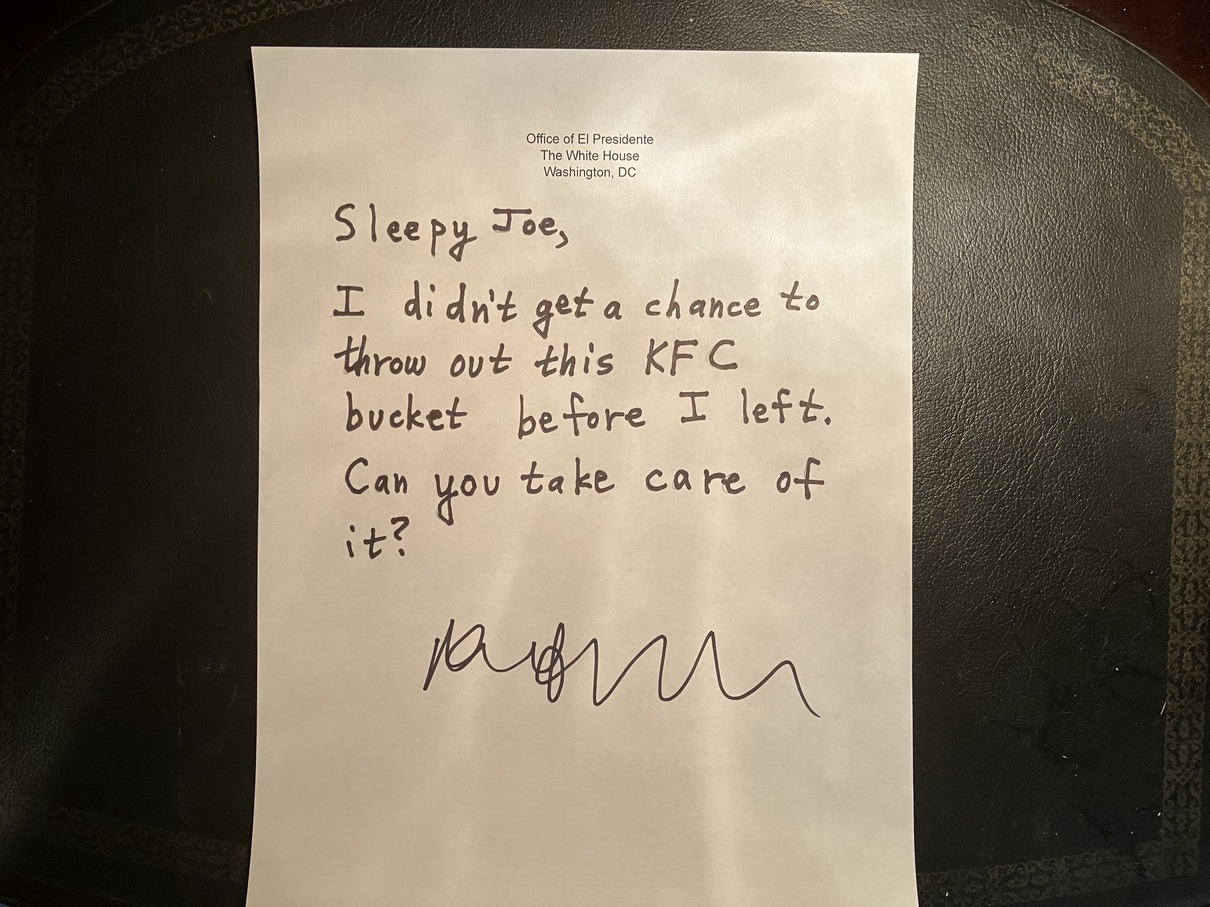 Office of El Presidente
The White House
Washington, DC
Sleepy Joe,
I didn't get a chance to
throw out this KFC
bucket before I left.
Can you take care of
it?